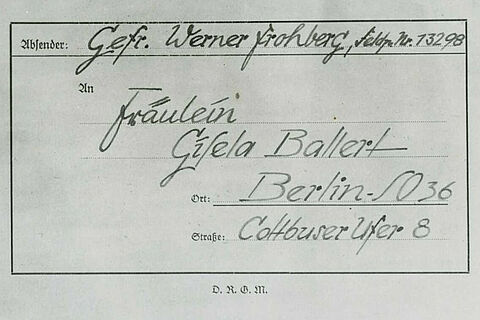 Absender: Gefr. Werner Frohberg, Feldp. Nr. 13298
An
Fräulein
Gisela Ballert
Ort: Berlin-SO 36
Straße: Cottbuser Ufer 8
D. R. G. M.